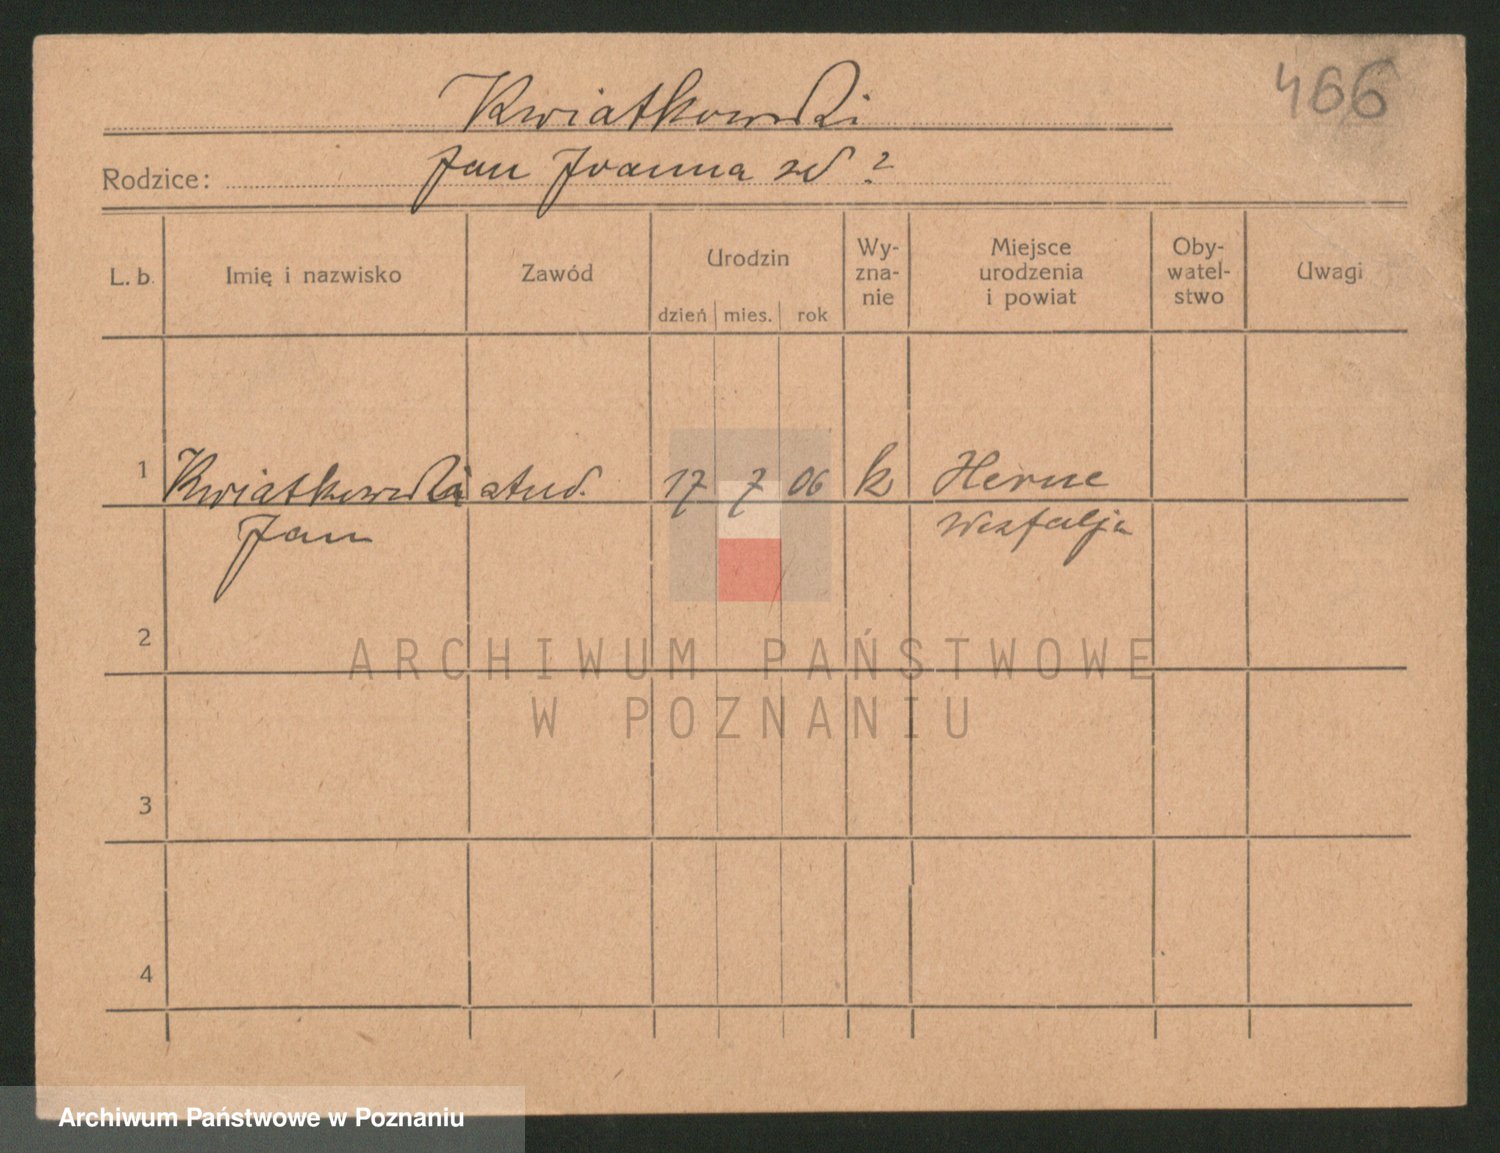 466
Kwiatkowski
Rodzice: Jan Joanna zd ?
L. b. Imię i nazwisko Zawód Urodzin Wy-zna-nie Miejsce urodzenia i powiat Oby-watel-stwo Uwagi
dzień mies. rok
1 Kwiatkowski stud. 17 7 06 k Herne
Jan Westfalja
2
ARCHIWUM PAŃSTWOWE
W POZNANIU
3
4
Archiwum Państwowe w Poznaniu